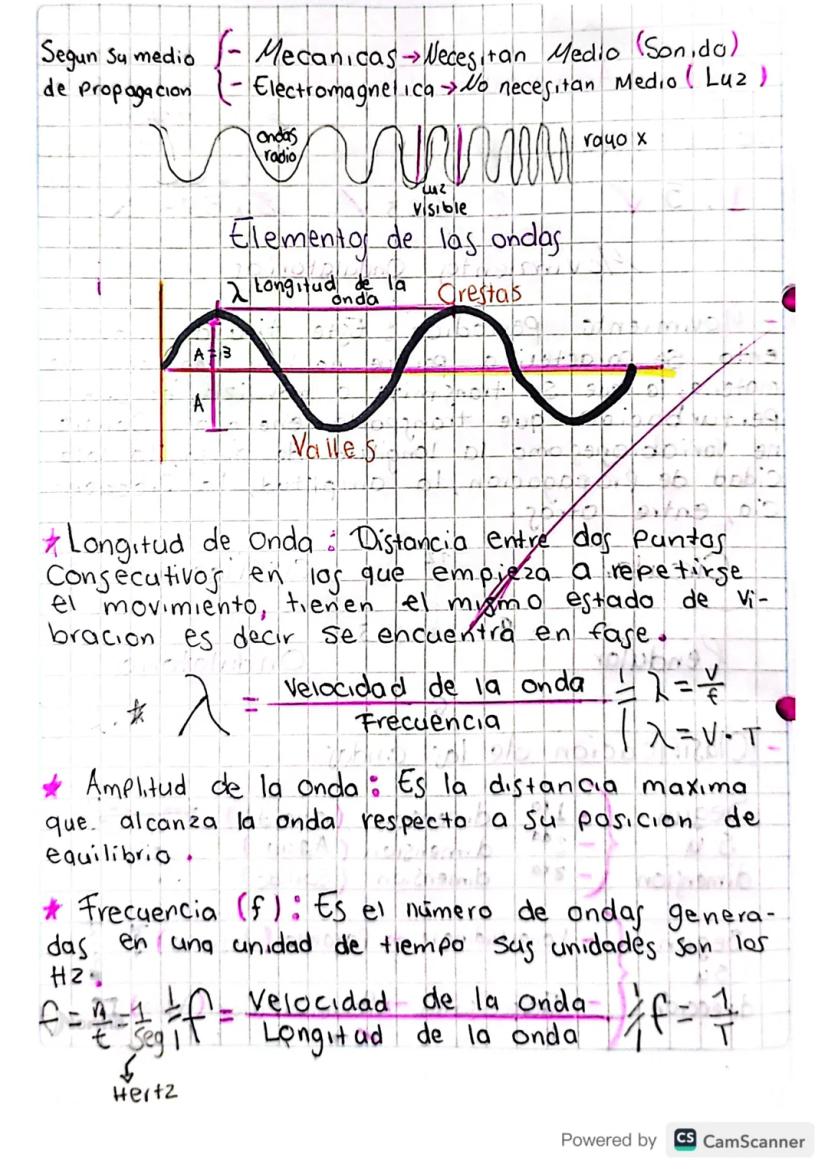 Segun su medio
de propagacion
- Mecanicas → Necesitan Medio (Sonido)
- Electromagnetica → No necesitan Medio (Luz)
ondas
radio
Luz
Visible
rayo x
Elementos de las ondas
λ Longitud de la
onda
Crestas
A = 3
A
Valles
* Longitud de onda : Distancia entre dos puntos
Consecutivos en los que empieza a repetirse
el movimiento, tienen el mismo estado de vi-
bracion es decir se encuentra en fase.
* λ = Velocidad de la onda / Frecuencia
λ = V/f
λ = V · T
* Amplitud de la onda : Es la distancia maxima
que alcanza la onda respecto a su posicion de
equilibrio .
* Frecuencia (f) : Es el número de ondas genera-
das en una unidad de tiempo sus unidades son los
Hz.
f = n/t = 1/seg
f = Velocidad de la onda / Longitud de la onda
f = 1/T
Hertz
Powered by CS CamScanner